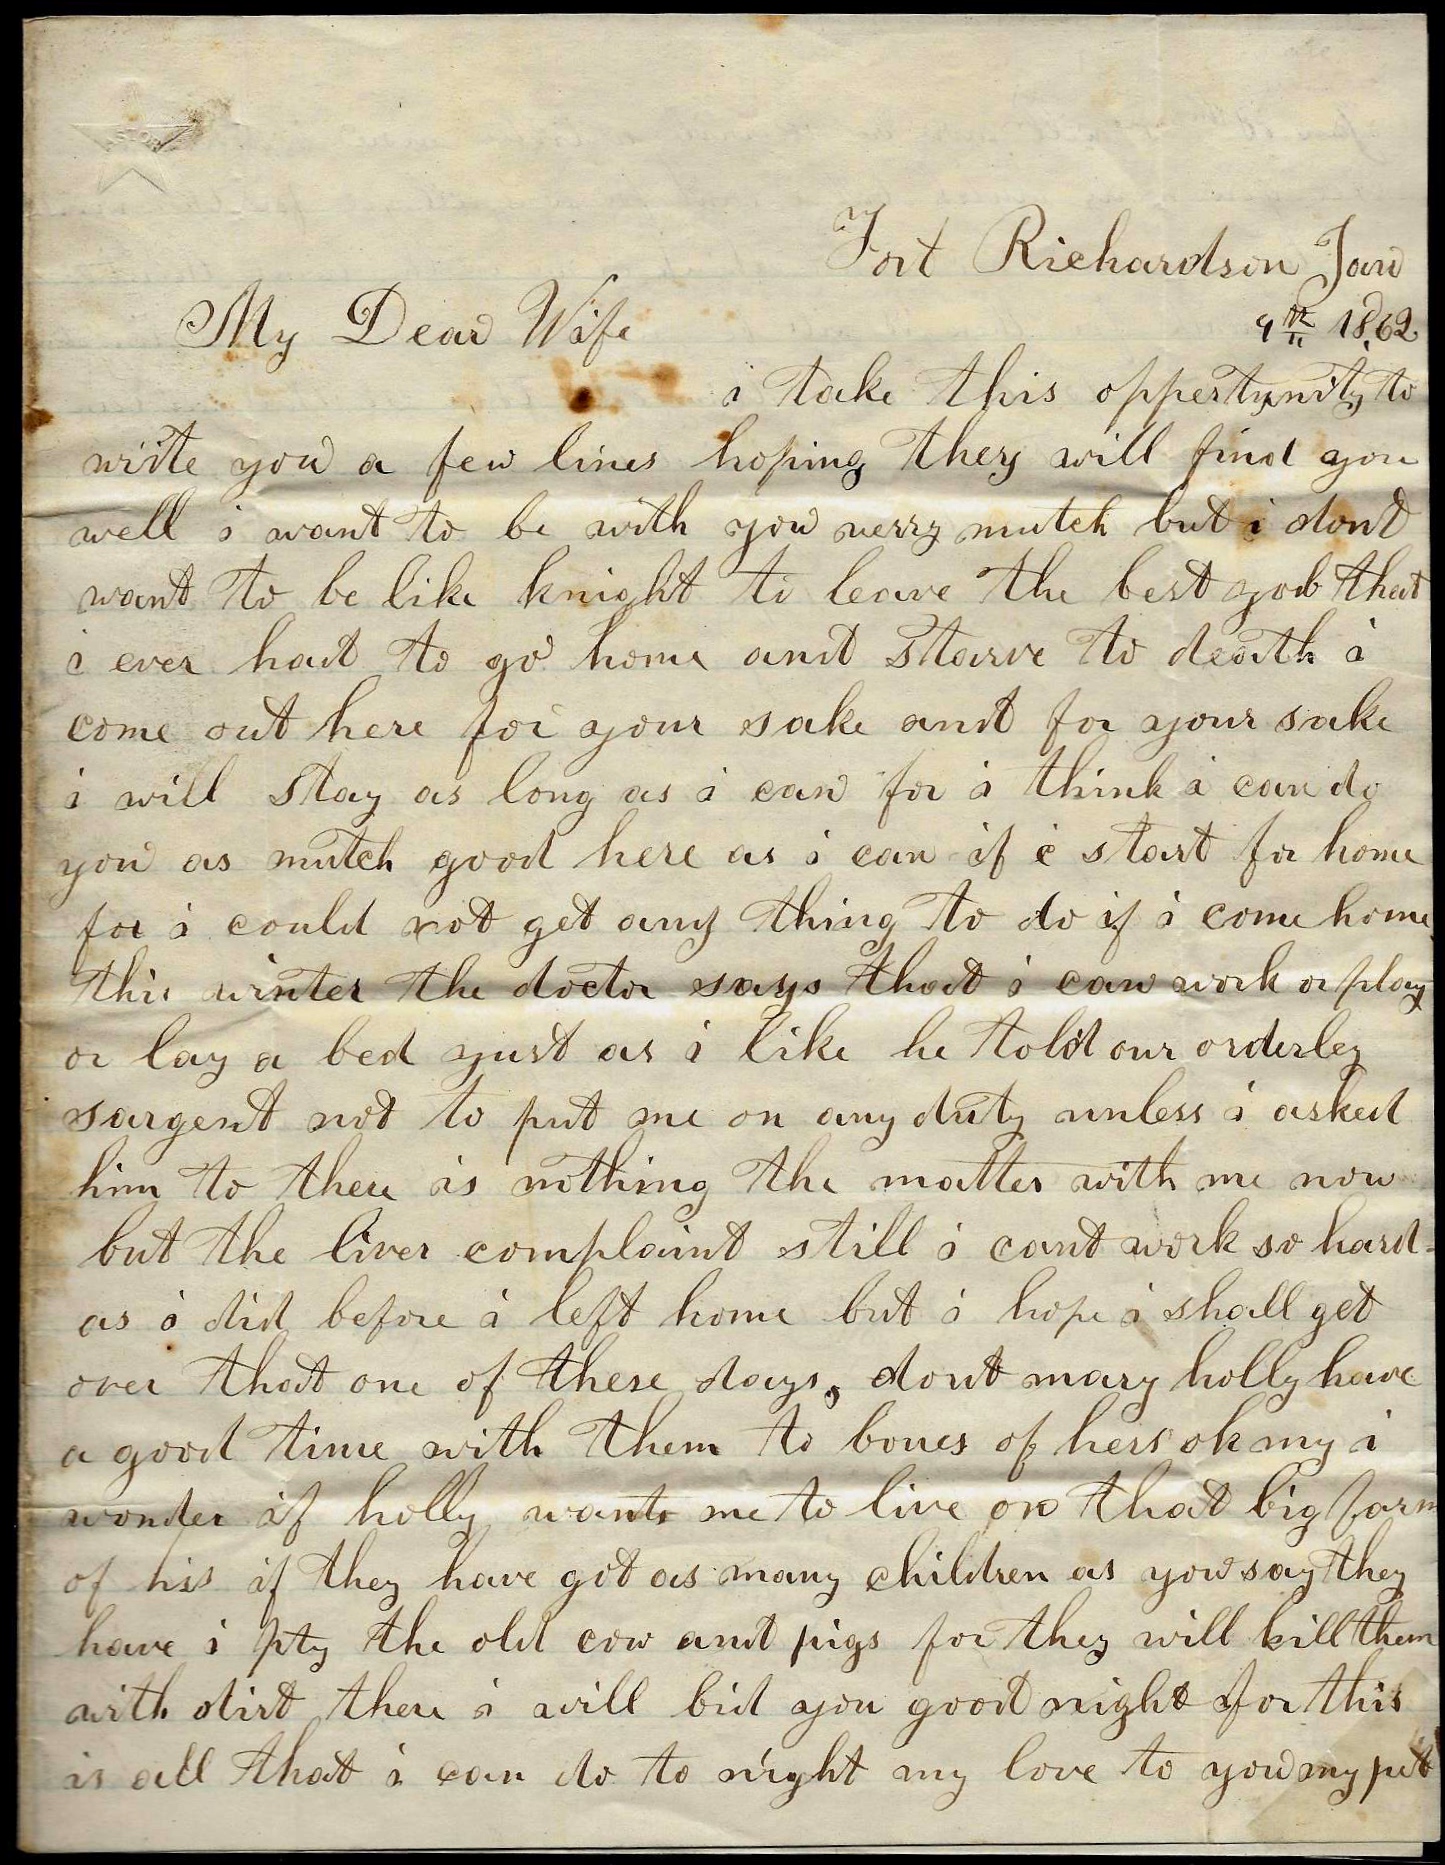 Fort Richardson Jan
9th 1862
My Dear Wife
i take this oppertunity to
write you a few lines hoping they will find you
well i want to be with you verry mutch but i dont
want to be like knight to leave the best yob that
i ever had to go home and starve to death i
come out here for your sake and for your sake
i will stay as long as i can for i think i can do
you as mutch good here as i can if i start for home
for i could not get any thing to do if i come home
this winter the doctor says that i can work or play
or lay a bed yust as i like he told our orderley
sargent not to put me on any duty unless i asked
him to there is nothing the matter with me now
but the liver complaint still i cant work so hard
as i did before i left home but i hope i shall get
over that one of these days, dont mary holly have
a good time with them to boues of hers oh my i
wonder if holly wants me to live on that big farm
of his if they have got as many children as you say they
have i pty the old cow and pigs for they will kill them
with dirt there i will bid you good night for this
is all that i can do to night my love to you my pet